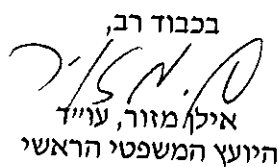 בכבוד רב,
אילן מזור, עו״ד
היועץ המשפטי הראשי